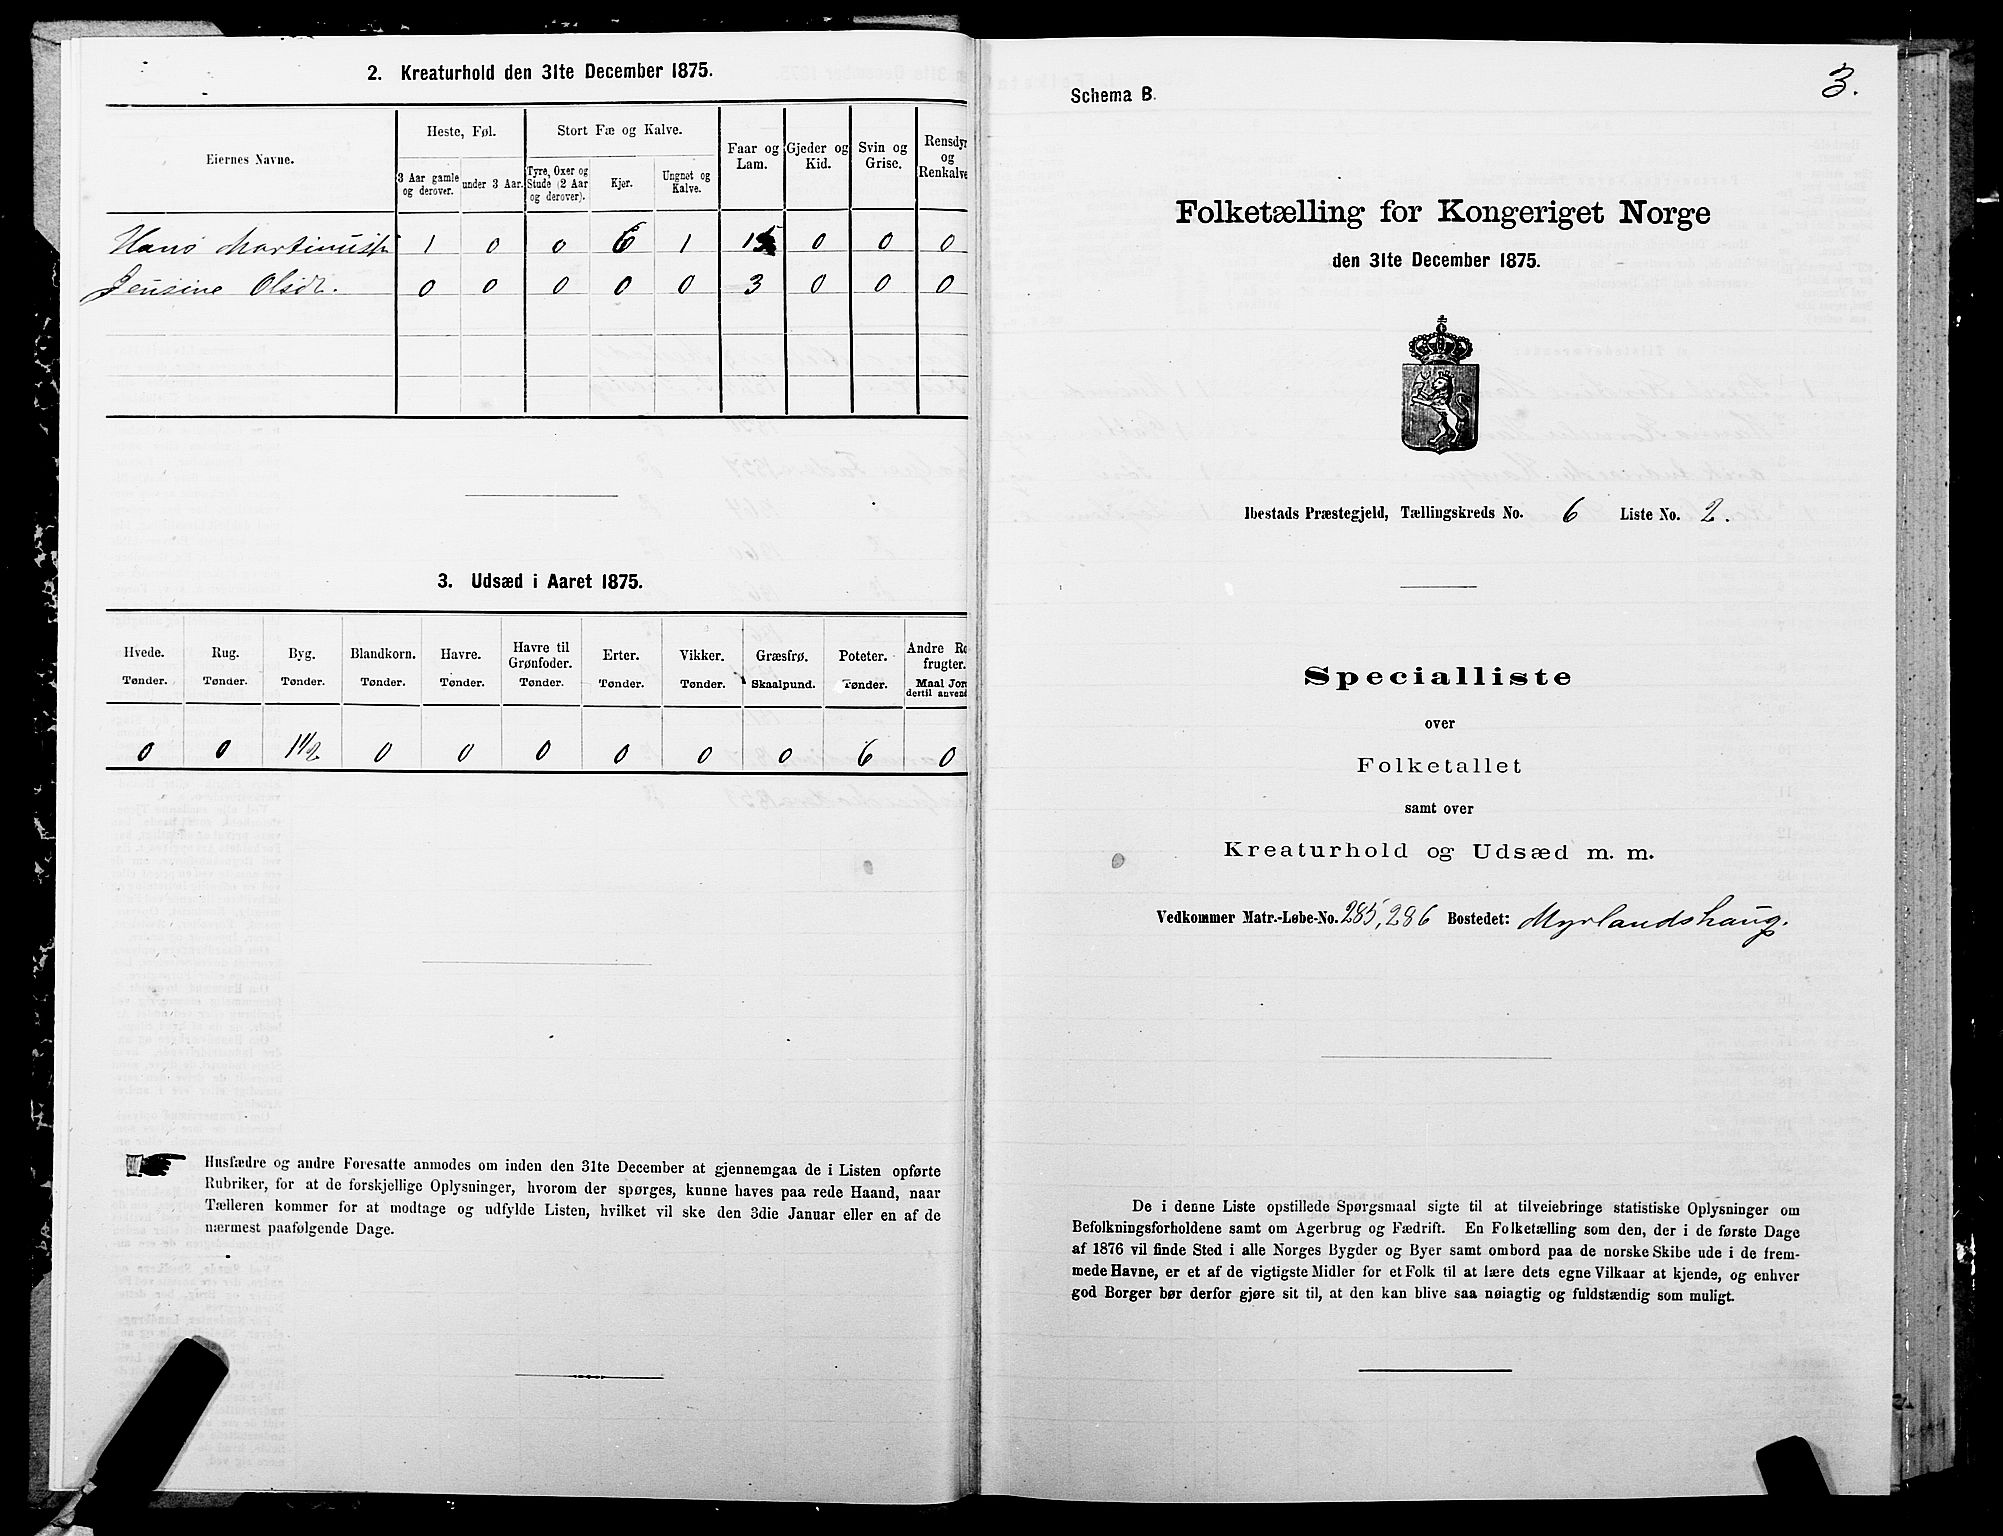 2. Kreaturhold den 31te December 1875.
Eiernes Navne.
Heste, Føl.
Stort Fæ og Kalve.
Faar og Lam.
Gjeder og Kid.
Svin og Grise.
Rensdyr og Renkalve
3 Aar gamle og derover.
under 3 Aar.
Tyre, Oxer og Stude (2 Aar og derover).
Kjør.
Ungnøt og Kalve.
Hans Martinus 1 0 0 6 1 15 0 0 0
Jensine Olsdr. 0 0 0 0 0 3 0 0 0
3. Udsæd i Aaret 1875.
Hvede. Rug. Byg. Blandkorn. Havre. Havre til Grønfoder. Erter. Vikker. Græsfrø. Poteter. Andre Ro frugter.
Tønder. Tønder. Tønder. Tønder. Tønder. Tønder. Tønder. Tønder. Skaalpund. Tønder. Maal Jord dertil anvendt
0 0 1 1/2 0 0 0 0 0 0 6 0
Husfædre og andre Foresatte anmodes om inden den 31te December at gjennemgaa de i Listen opførte
Rubriker, for at de forskjellige Oplysninger, hvorom der spørges, kunne haves paa rede Haand, naar
Tælleren kommer for at modtage og udfylde Listen, hvilket vil ske den 3die Januar eller en af de
nærmest paafølgende Dage.
3.
Schema B.
Folketælling for Kongeriget Norge
den 31te December 1875.
Ibestads Præstegjeld, Tællingskreds No. 6 Liste No. 2.
Specialliste
over
Folketallet
samt over
Kreaturhold og Udsæd m. m.
Vedkommer Matr.-Løbe-No. 285, 286 Bostedet: Myrlandshaug.
De i denne Liste opstillede Spørgsmaal sigte til at tilveiebringe statistiske Oplysninger om
Befolkningsforholdene samt om Agerbrug og Fædrift. En Folketælling som den, der i de første Dage
af 1876 vil finde Sted i alle Norges Bygder og Byer samt ombord paa de norske Skibe ude i de frem-
mede Havne, er et af de vigtigste Midler for et Folk til at lære dets egne Vilkaar at kjende, og enhver
god Borger bør derfor gjøre sit til, at den kan blive saa nøiagtig og fuldstændig som muligt.